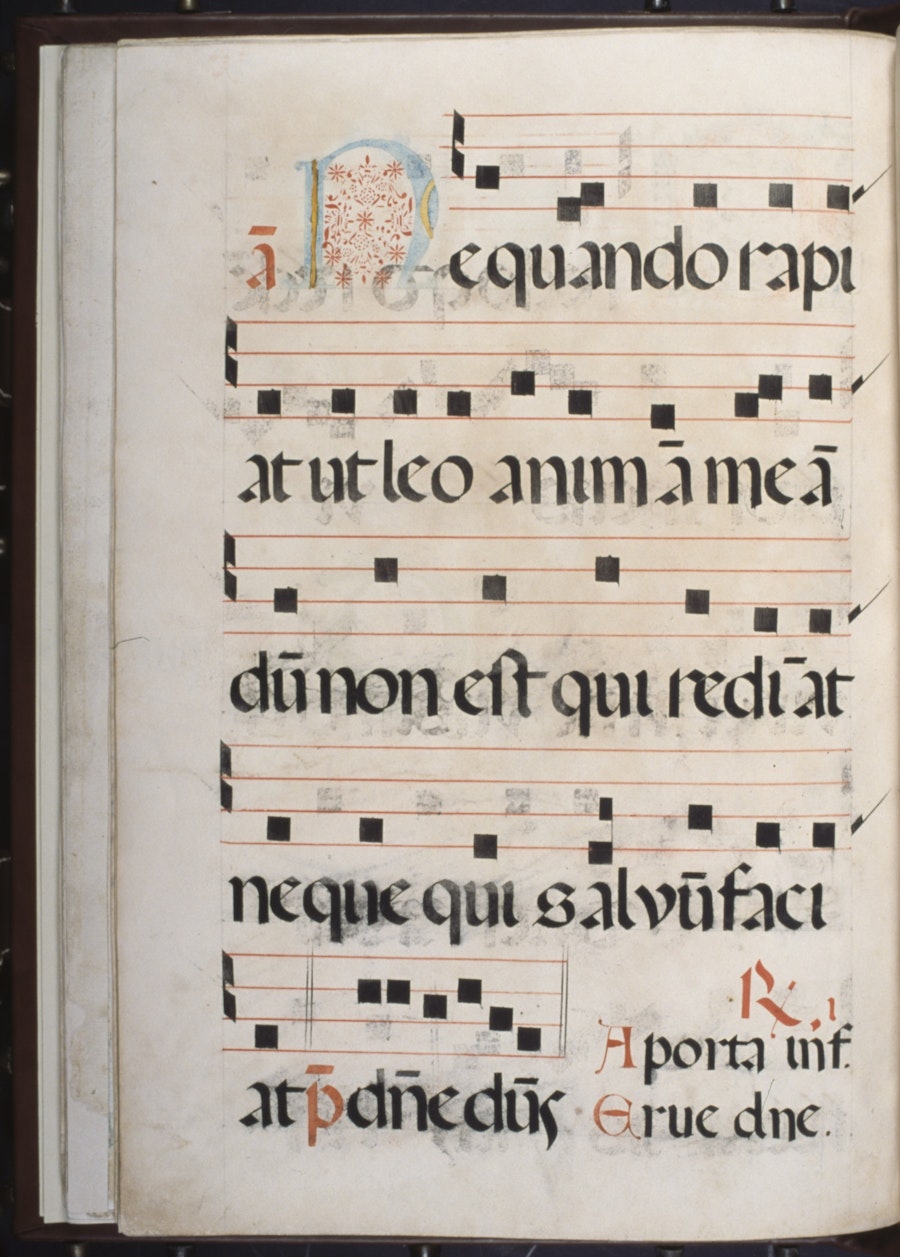 ā Nequando rapi
at ut leo animā meā
dū non est qui redīat
neque qui salvū faci
at p̄ dn̄e dūs
℟. 1
A porta inf.
Erue dne.